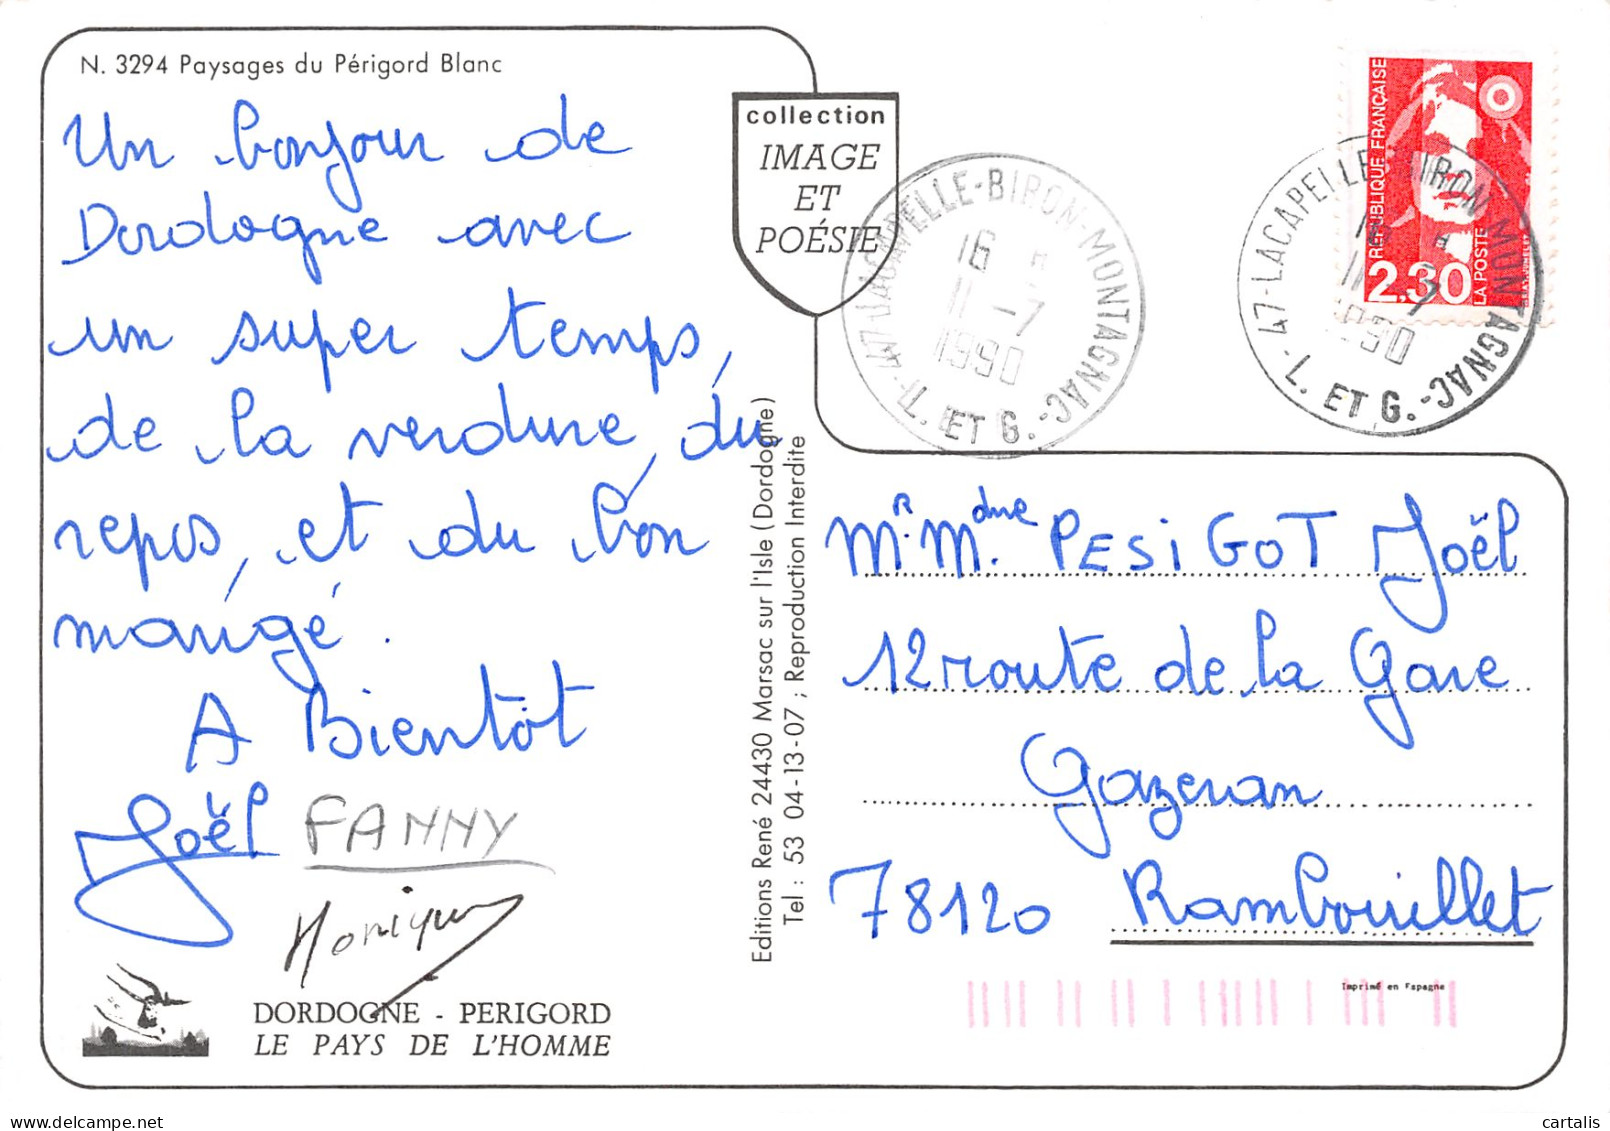 N. 3294 Paysages du Périgord Blanc
Un bonjour de
Dordogne avec
un super temps,
de la verdure, du
repos, et du bon
mangé.
A Bientôt
Joël FANNY
Monique
DORDOGNE - PERIGORD
LE PAYS DE L'HOMME
collection
IMAGE
ET
POÉSIE
Editions René 24430 Marsac sur l'Isle (Dordogne)
Tel : 53 04-13-07 ; Reproduction Interdite
47-LACAPELLE-BIRON-MONTAGNAC-
16 H
11-7
1990
L. ET G.
47-LACAPELLE BIRON MONTAGNAC-
16 H
11 -7
1990
L. ET G.
REPUBLIQUE FRANÇAISE
2,30
LA POSTE
Mr. Mdme. PESiGOT Joël
12 route de la Gare
Gazeran
78120 Rambouillet
Imprimé en Espagne
cartalis